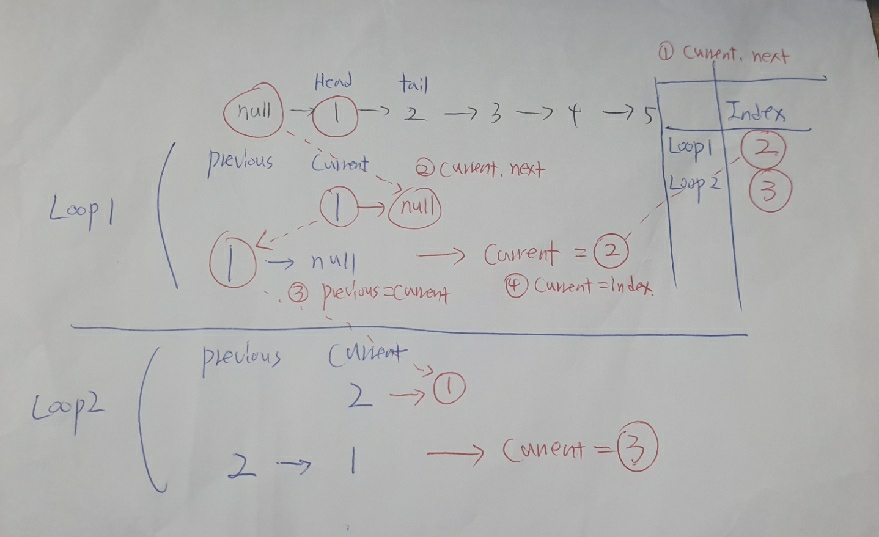 ① Current. next
Head tail
null → 1 → 2 → 3 → 4 → 5
Index
Loop1 2
Loop2 3
Loop1
previous Current ② Current. next
1 → null
1 → null → Current = 2
③ previous = current ④ Current = Index.
Loop2
previous Current
2 → 1
2 → 1 → Current = 3